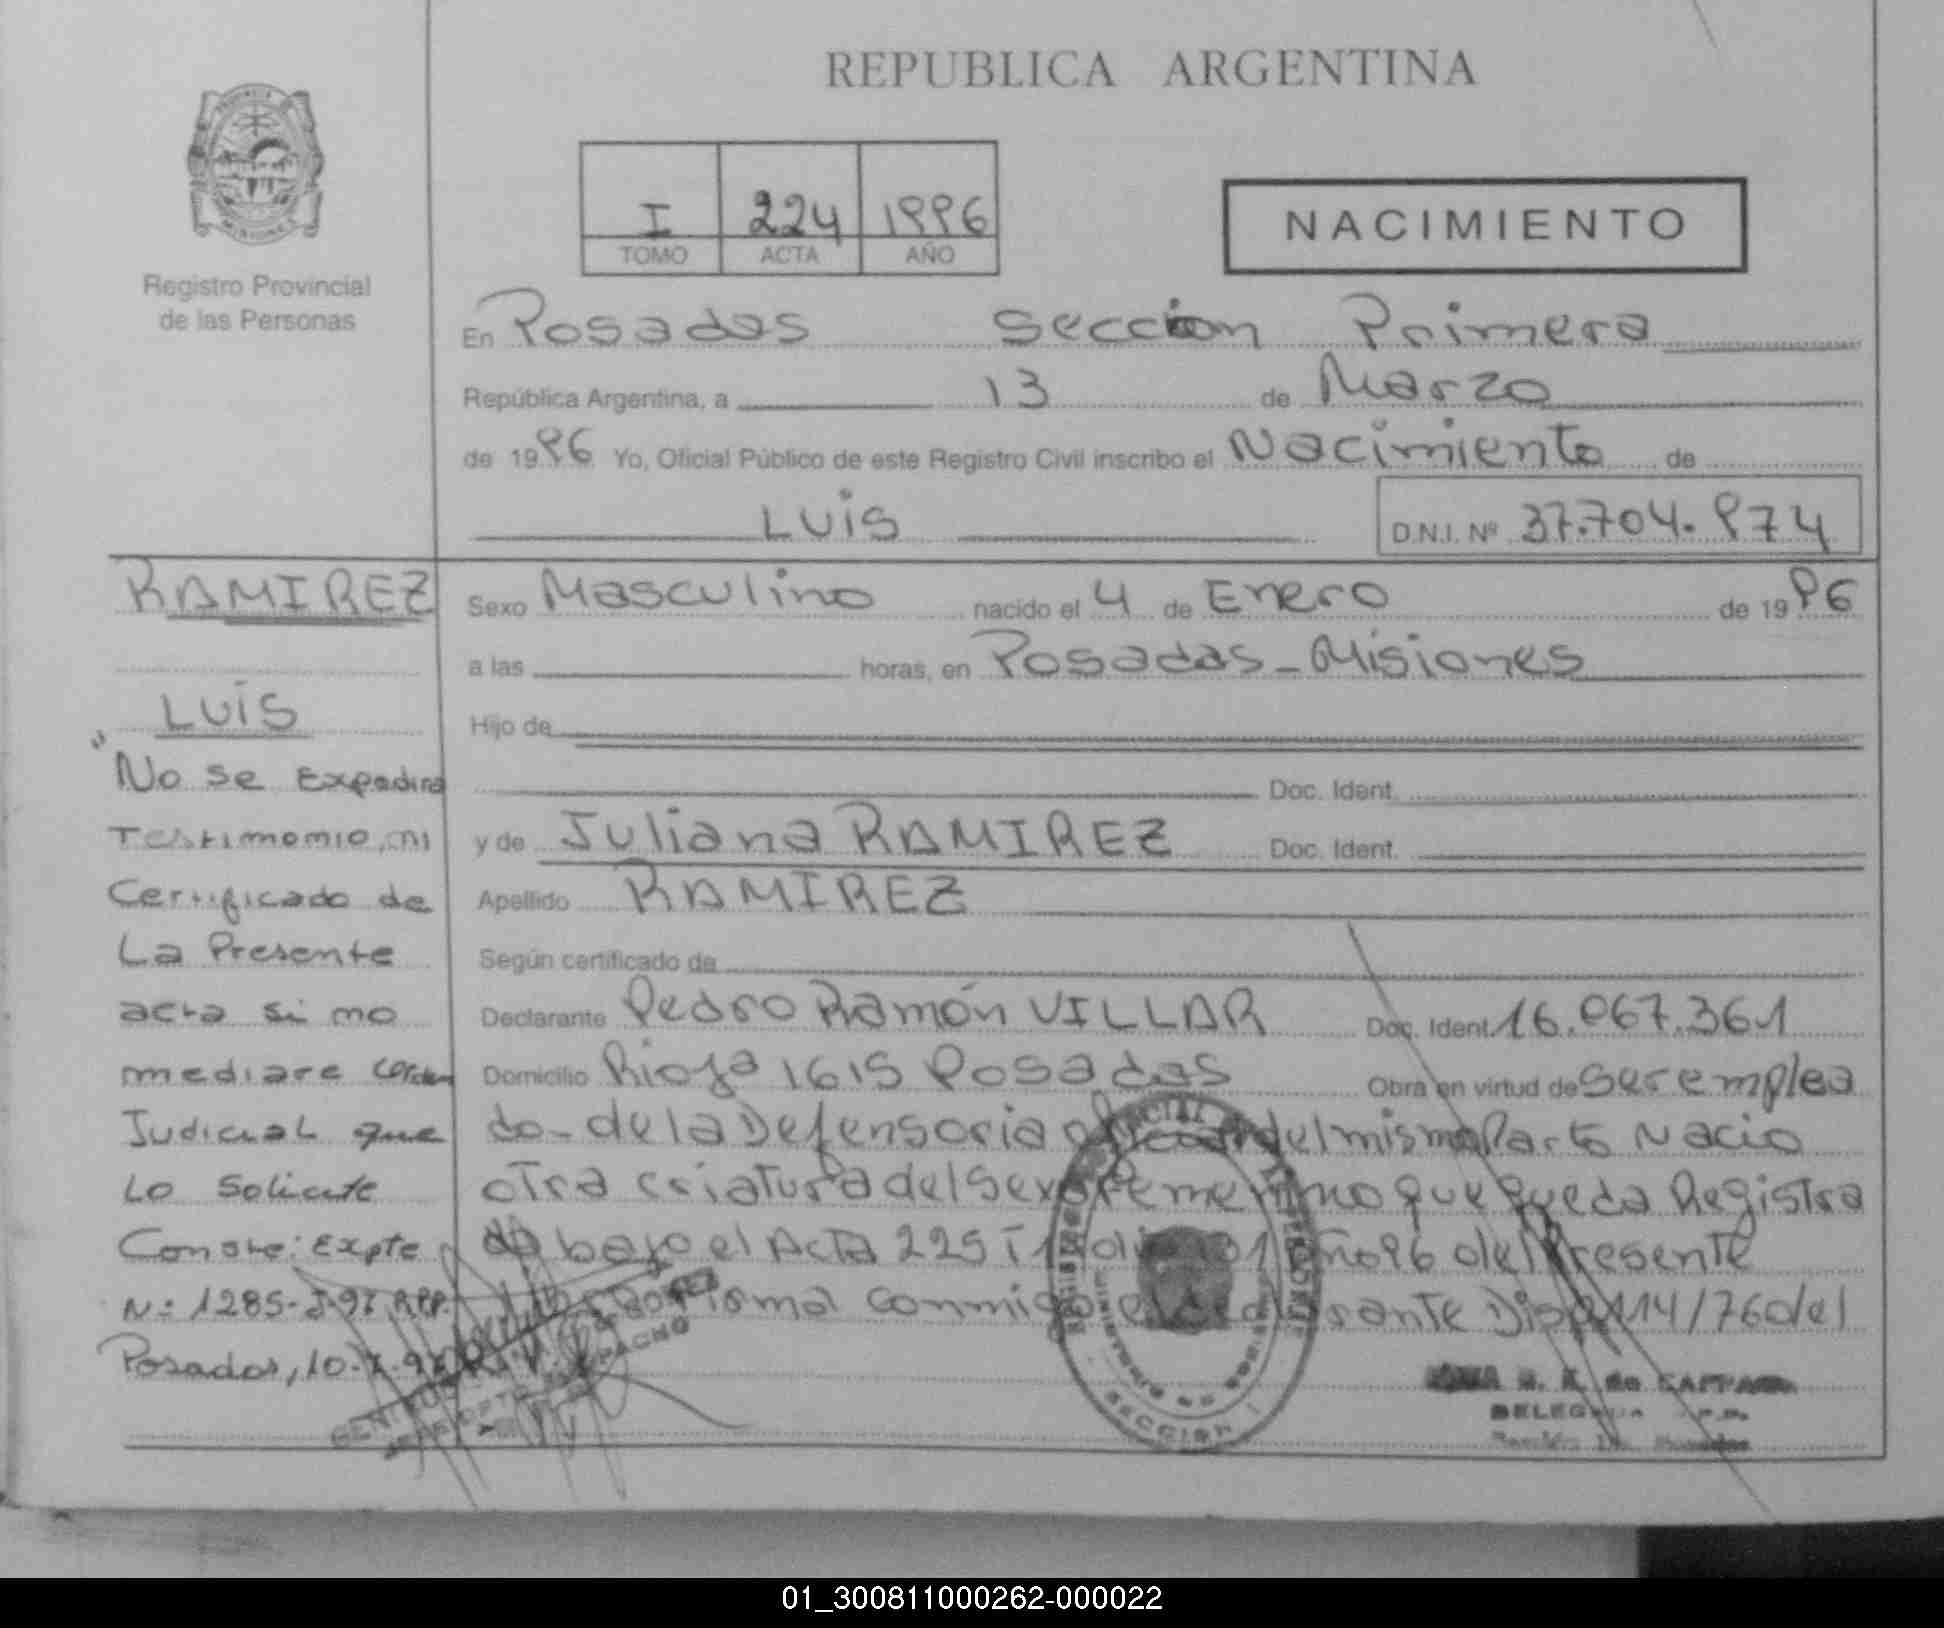 REPUBLICA ARGENTINA
PROVINCIA
MISIONES
Registro Provincial
de las Personas
I 224 1996
TOMO ACTA AÑO
NACIMIENTO
En Posadas Seccion Primera
República Argentina, a 13 de Marzo
de 1996 Yo, Oficial Público de este Registro Civil inscribo el Nacimiento de
LUIS
D.N.I. Nº 37.704.974
RAMIREZ
LUIS
"No se Expedira
Testimonio, ni
Certificado de
La Presente
acta si no
mediare orden
Judicial que
Lo Solicite
Conste: Expte
Nº: 1285-J-97 RPP.
Posadas, 10-
Sexo Masculino nacido el 4 de Enero de 1996
a las horas, en Posadas - Misiones
Hijo de
Doc. Ident.
y de Juliana RAMIREZ Doc. Ident.
Apellido RAMIREZ
Según certificado de
Declarante Pedro Ramón VILLAR Doc. Ident. 16.067.361
Domicilio Rioja 1615 Posadas Obra en virtud de ser emplea
do - de la Defensoria del mismo Parto Nacio
otra criatura del Sexo Femenino que queda Registra
do bajo el Acta 225 T1 año 96 del Presente
firma conmigo el declarante Disp 2114/76 del
SECCION I
DELEGADA
01_300811000262-000022